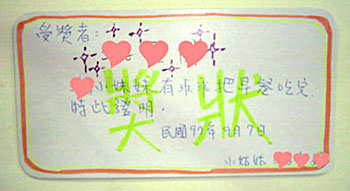 受獎者：
獎狀
小妹妹有乖乖把早餐吃完
特此證明。
民國97年9月7日
小姑姑